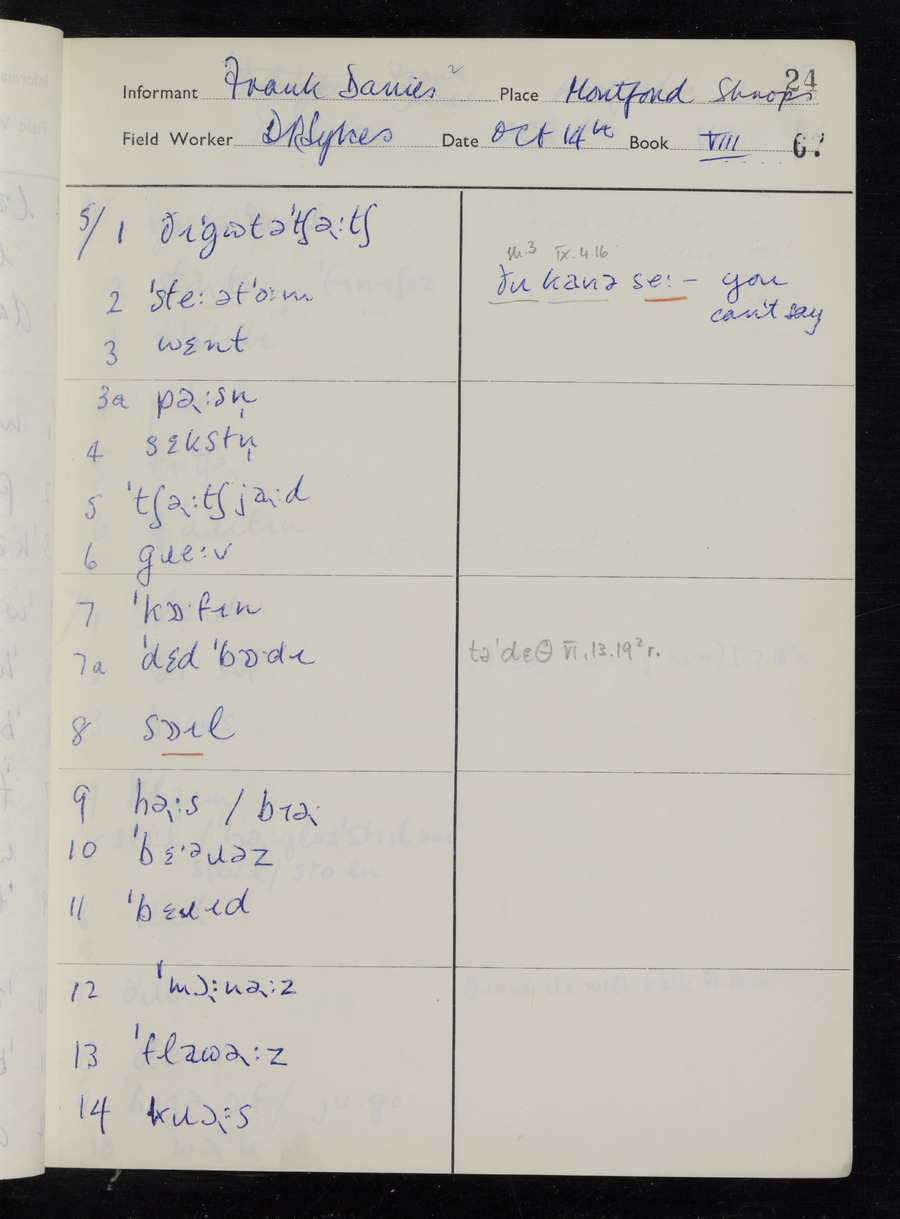 24
Informant Frank Davies 2 Place Montford Shrops
Field Worker D R Sykes Date Oct 14th Book VIII 67
5/ 1 ðɪˈgɷtəˈtʃə˞ːtʃ
2 ˈsteː ətˈɔːm
3 wɛnt
3a pə˞ːsn̩
4 sɛkstn̩
5 ˈtʃə˞ːtʃjə˞ːd
6 gɹeːv
7 ˈkɒ·fɪn
7a ˈdɛd ˈbɒ·dɪ
8 sɒɪl
9 hə˞ːs / bɪə˞
10 ˈbɛ·əɹəz
11 ˈbɛɹɪd
12 ˈmɔ˞ːnə˞ːz
13 ˈflaɷə˞ːz
14 kɹɔ˞ːs
IX.4.16
ðu kanə seː – you
can't say
təˈdɛθ VI.13.19 r.